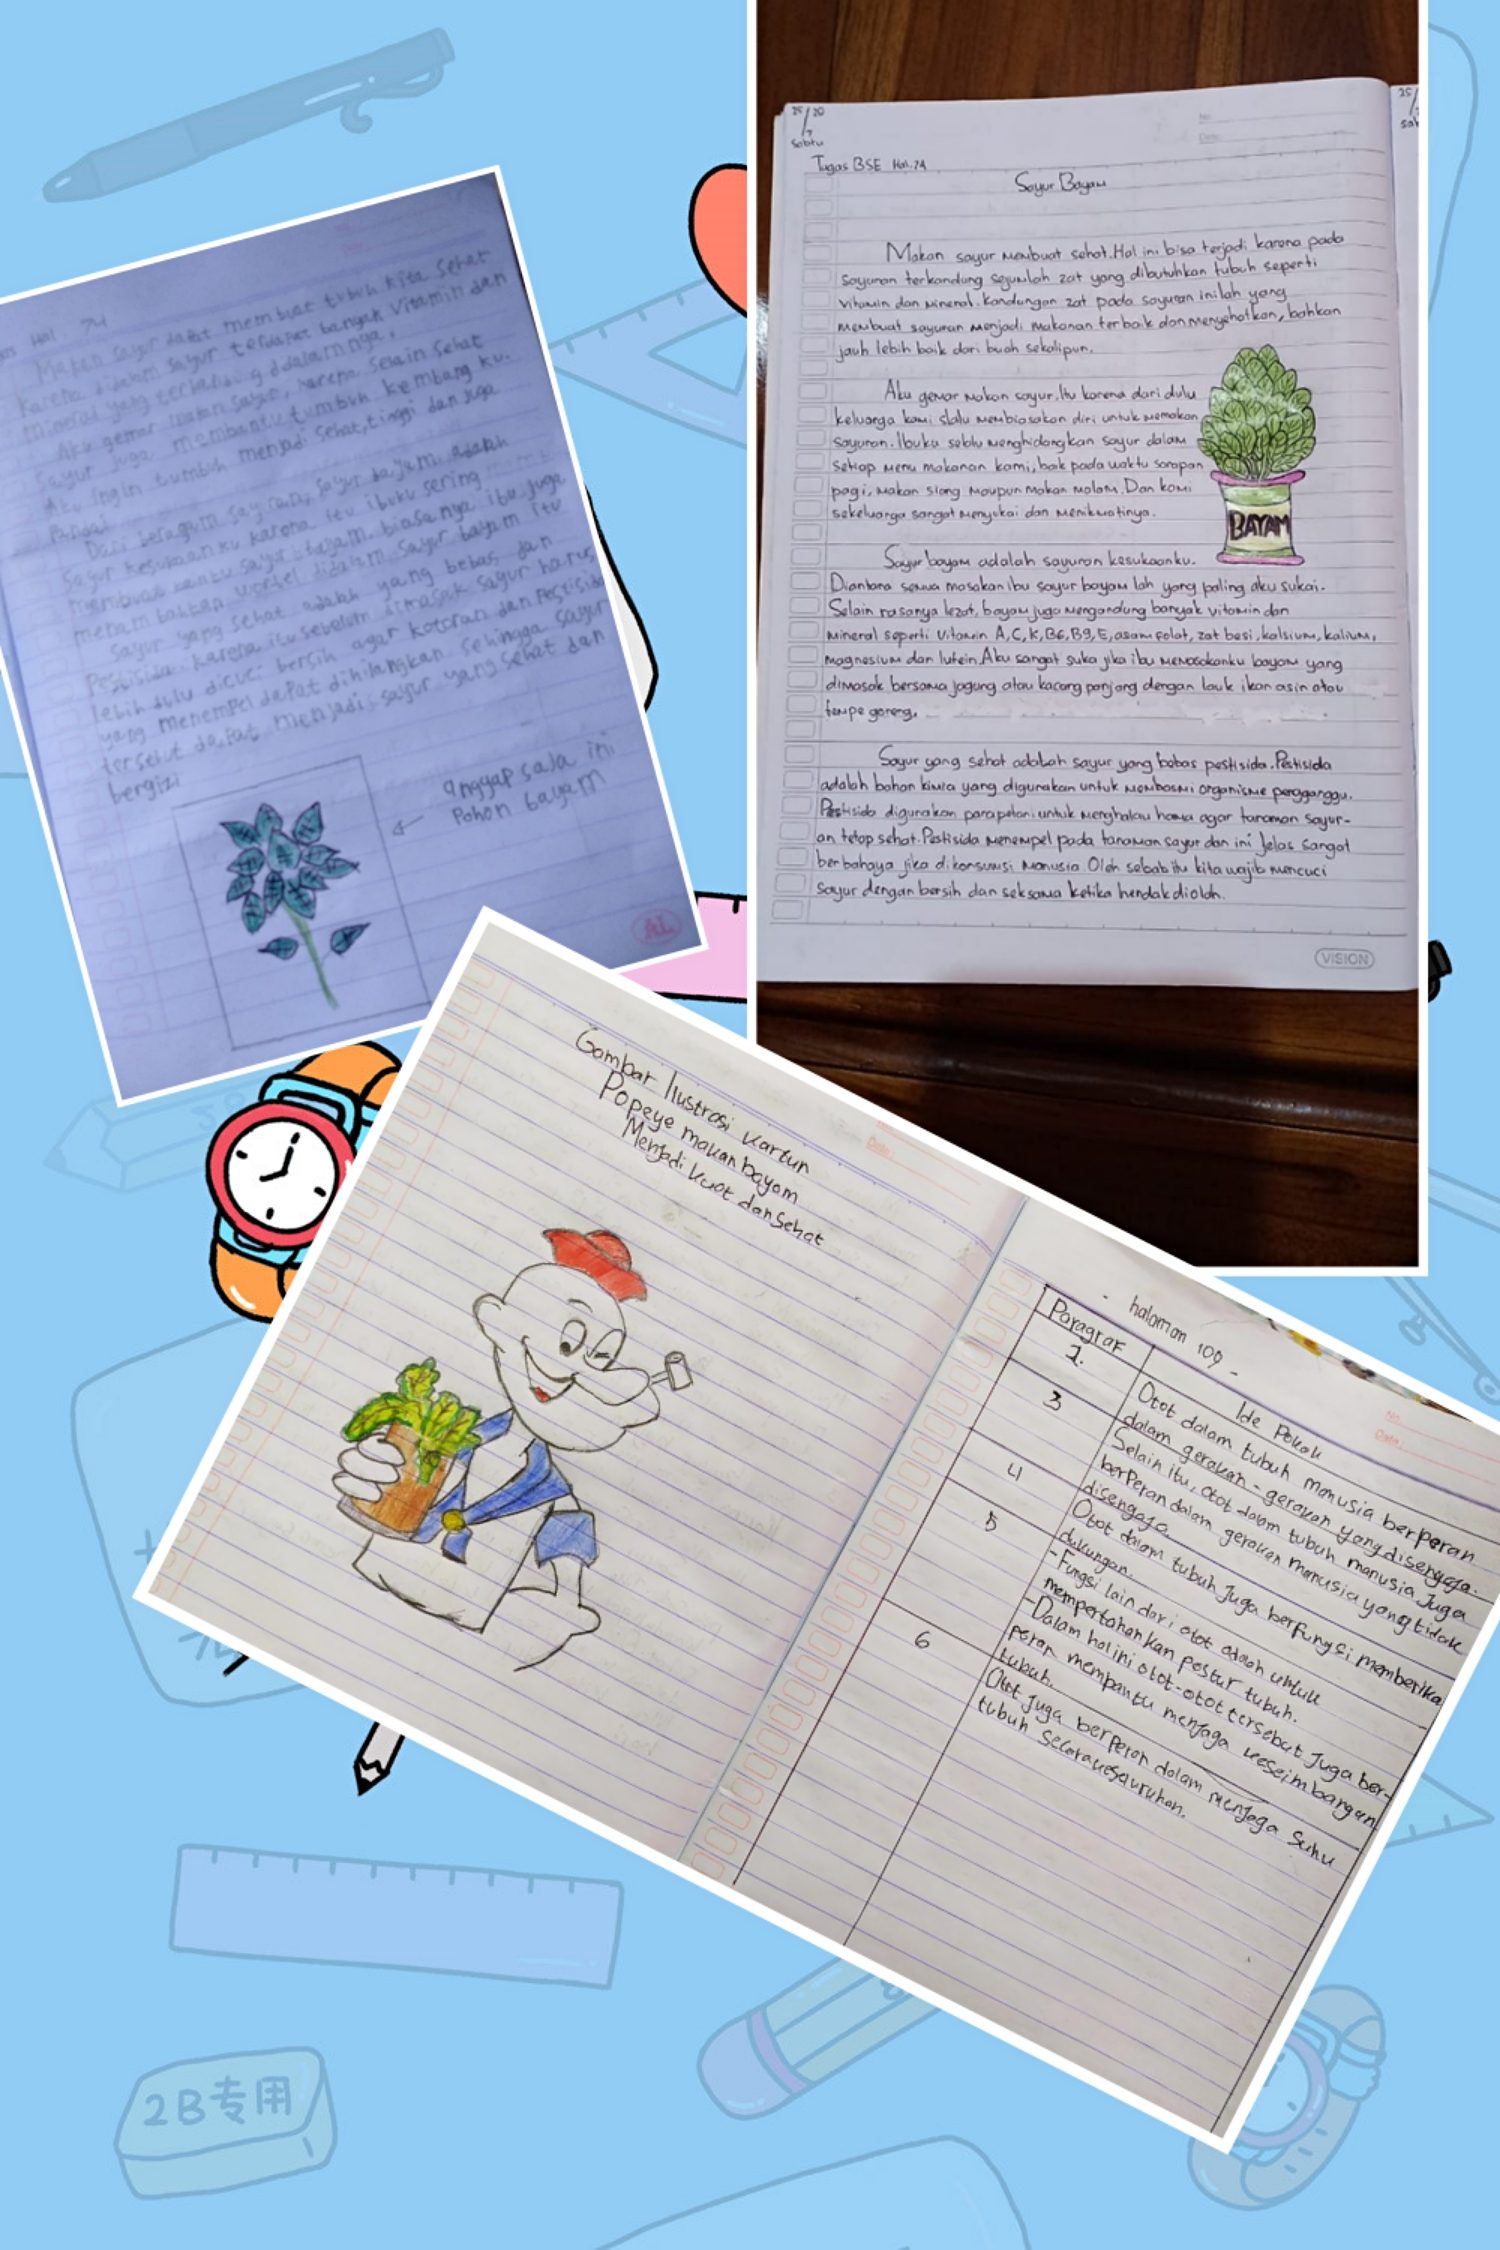 Hal 74
Makan sayur dapat membuat tubuh kita sehat
karena didalam sayur terdapat banyak Vitamin dan
mineral yang terkandung didalamnya.
Aku gemar makan sayur, karena selain sehat
Sayur juga membantu tumbuh kembang ku.
Aku ingin tumbuh menjadi sehat, tinggi dan juga
Pandai.
Dari beragam sayuran, sayur bayam adalah
sayur kesukaan ku karena itu ibuku sering
membuat sayur bayam. biasanya ibu juga
menambahkan wortel didalam sayur bayam itu
Sayur yang sehat adalah yang bebas dari
Pestisida. karena itu sebelum dimasak sayur harus
lebih dulu dicuci bersih agar kotoran dan Pestisida
yang menempel dapat dihilangkan sehingga sayur
tersebut dapat menjadi sayur yang sehat dan
bergizi
anggap saja ini
Pohon bayam
AL
25/20
7
Sabtu
Tugas BSE Hal.74
Sayur Bayam
Makan sayur membuat sehat. Hal ini bisa terjadi karena pada
sayuran terkandung sejumlah zat yang dibutuhkan tubuh seperti
vitamin dan mineral. Kandungan zat pada sayuran inilah yang
membuat sayuran menjadi makanan terbaik dan menyehatkan, bahkan
jauh lebih baik dari buah sekalipun.
Aku gemar makan sayur. Itu karena dari dulu
keluarga kami slalu membiasakan diri untuk memakan
sayuran. Ibuku selalu menghidangkan sayur dalam
setiap menu makanan kami, baik pada waktu sarapan
pagi, makan siang maupun makan malam. Dan kami
sekeluarga sangat menyukai dan menikmatinya.
BAYAM
Sayur bayam adalah sayuran kesukaanku.
Diantara semua masakan ibu sayur bayam lah yang paling aku sukai.
Selain rasanya lezat, bayam juga mengandung banyak vitamin dan
mineral seperti vitamin A, C, K, B6, B9, E, asam folat, zat besi, kalsium, kalium,
magnesium dan lutein. Aku sangat suka jika ibu memasakanku bayam yang
dimasak bersama jagung atau kacang panjang dengan lauk ikan asin atau
tempe goreng.
Sayur yang sehat adalah sayur yang bebas pestisida. Pestisida
adalah bahan kimia yang digunakan untuk membasmi organisme pengganggu.
Pestisida digunakan para petani untuk menghalau hama agar tanaman sayur-
an tetap sehat. Pestisida menempel pada tanaman sayur dan ini jelas sangat
berbahaya jika dikonsumsi manusia. Oleh sebab itu kita wajib mencuci
sayur dengan bersih dan seksama ketika hendak diolah.
VISION
Gambar Ilustrasi Kartun
Popeye makan bayam
Menjadi kuat dan sehat
- halaman 109 -
Paragraf
Ide Pokok
2.
Otot dalam tubuh manusia berperan
dalam gerakan - gerakan yang disengaja.
3
Selain itu, otot dalam tubuh manusia juga
berperan dalam gerakan manusia yang tidak
disengaja.
4
Otot dalam tubuh juga berfungsi memberika
dukungan.
5
- Fungsi lain dari otot adalah untuk
mempertahankan postur tubuh.
- Dalam hal ini otot-otot tersebut juga ber-
peran membantu menjaga keseimbangan
tubuh.
6
Otot juga berperan dalam menjaga suhu
tubuh secara keseluruhan.
2B专用